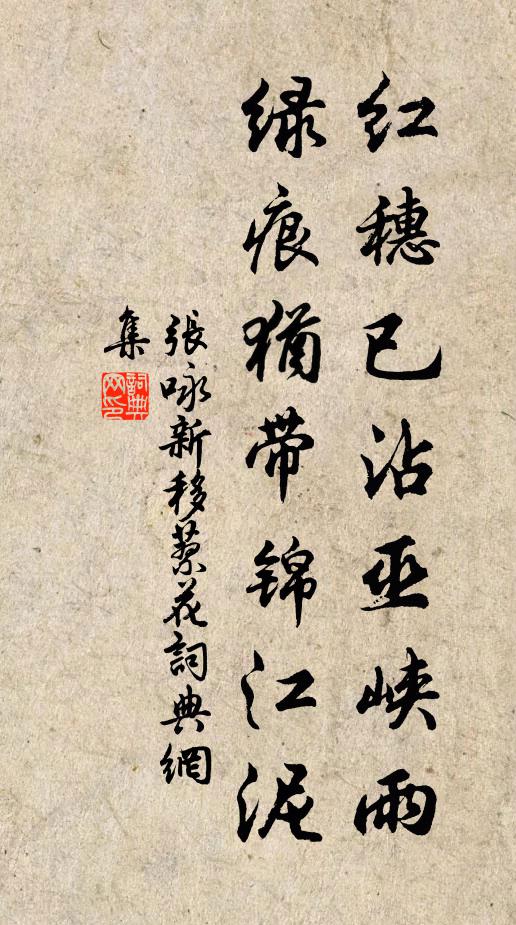 红穗已沾巫峡雨
绿痕犹带锦江泥
張咏新移蓼花詞典網
集
詞典
网印